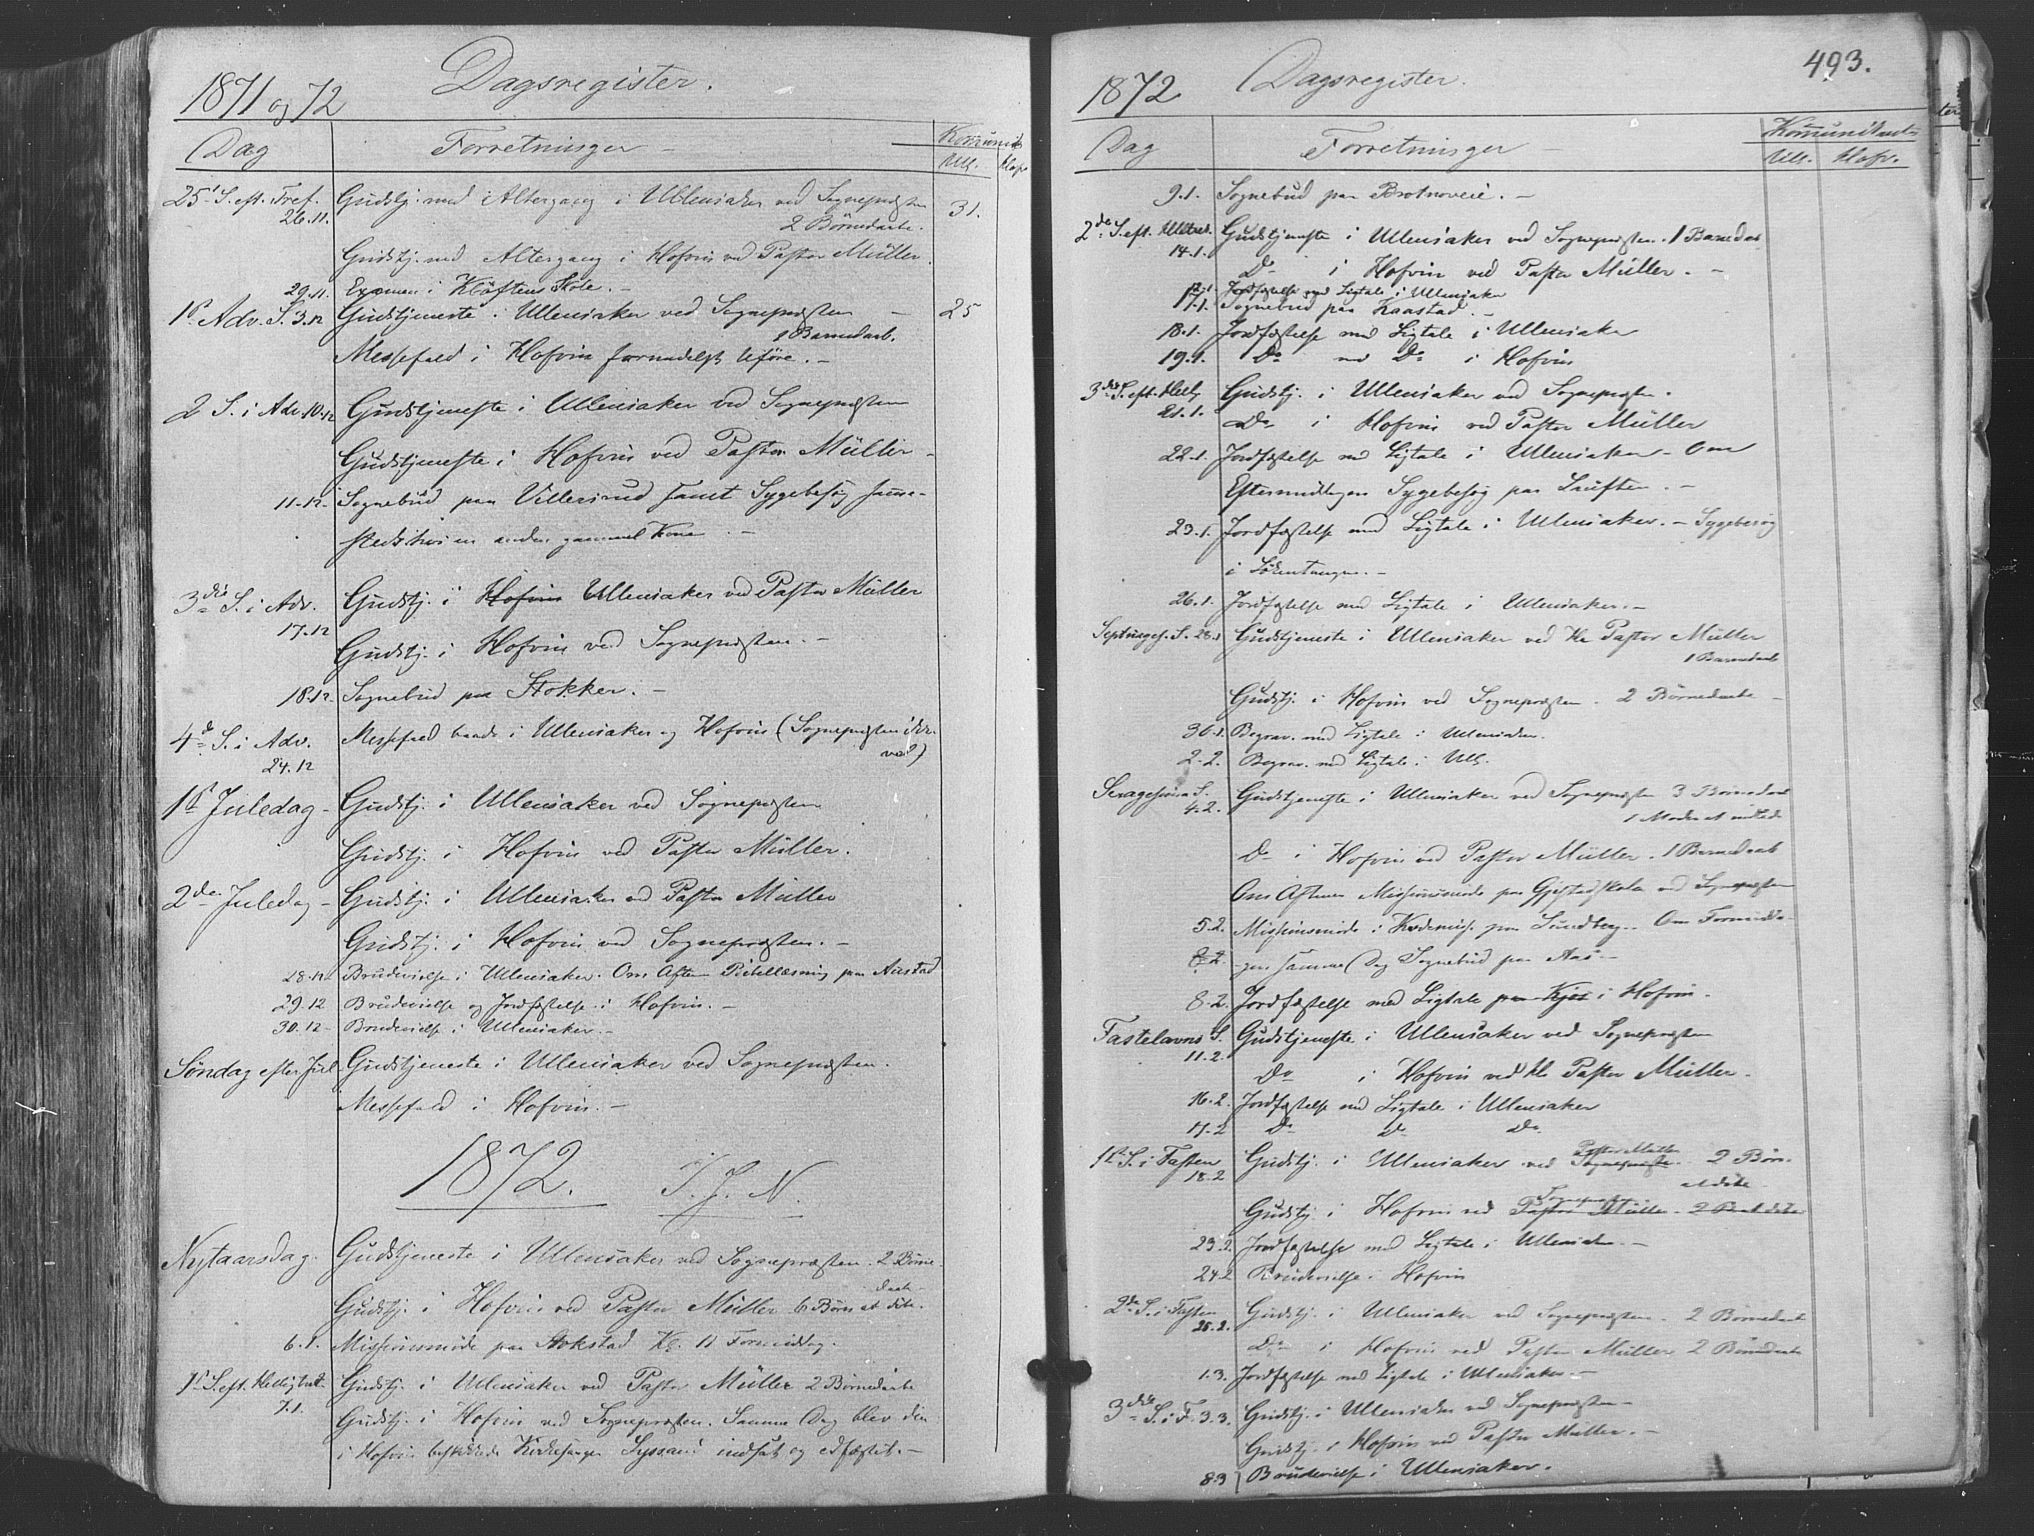 1871 og 72
Dagsregister.
Dag
Forretninger
Ull.
25' S. eft. Tref.
Gudstj. med Altergang i Ullensaker ved Sognepræsten
31.
26.11.
2 Børnedaabe.
Gudstj. med Altergang i Hofvin ved Pastor Müller.
29.11.
Examen i Kløftens Skole. -
1s Adv. S. 3.12
Gudstjeneste i Ullensaker ved Sognepræsten -
25
1 Barnedaab.
Messefald i Hofvin formedelst Uføre. -
2 S. i Adv. 10.12
Gudstjeneste i Ullensaker ved Sognepræsten
Gudstjeneste i Hofvin ved Pastor Müller -
11.12.
Sognebud paa Villersrud samt Sygebesøg samme-
steds hos en anden gammel Kone. -
3die S. i Adv.
Gudstj. i Hofvin Ullensaker ved Pastor Müller
17.12
Gudstj. i Hofvin ved Sognepræsten. -
18.12
Sognebud paa Stokker. -
4d S. i Adv.
Messefald baade i Ullensaker og Hofvin (Sognepræsten
24.12
1st Juledag -
Gudstj. i Ullensaker ved Sognepræsten
Gudstj. i Hofvin ved Pastor Müller.
2den Juledag -
Gudstj. i Ullensaker ved Pastor Müller
Gudstj. i Hofvin ved Sognepræsten. -
28.12
Brudevielse i Ullensaker. Om Aften Bibellæsning paa Aurstad
29.12
Brudevielse og Jordfæstelse i Hofvin. -
30.12
Brudevielse i Ullensaker. -
Søndag efter Jul
Gudstjeneste i Ullensaker ved Sognepræsten.
Messefald i Hofvin. -
1872.
I. J. N.
Nytaarsdag.
Gudstjeneste i Ullensaker ved Sognepræsten. 2 Børne-
daabe
Gudstj. i Hofvin ved Pastor Müller 6 Børn at døbe.
6.1.
Missionsmøde paa Kl. 11 Formiddag.
1s S. eft. Helligtrek.
Gudstj. i Ullensaker ved Pastor Müller 2 Børnedaabe
7.1.
Gudstj. i Hofvin ved Sognepræsten. Samme Dag blev den
i Hofvin beskikkede Kirkesanger indsat og edfæstet. -
1872
Dagsregister.
493.
Dag
Forretninger
Kommunikant-
Ull.
Hofv.
9.1.
Sognebud paa Brotnoveie. -
2den S. eft.
Gudstjeneste i Ullensaker ved Sognepræsten. 1 Barnedaab
14.1.
Do i Hofvin ved Pastor Müller. -
Jordfæstelse med Ligtale i Ullensaker
17.1.
Sognebud paa Kaastad. -
18.1.
Jordfæstelse med Ligtale i Ullensaker
19.1.
Do med Do i Hofvin
3die S. eft. Hell.
Gudstj. i Ullensaker ved Sognepræsten.
21.1.
Do i Hofvin ved Pastor Müller
22.1.
Jordfæstelse med Ligtale i Ullensaker - Om
Eftermiddagen Sygebesøg paa -
23.1.
Jordfæstelse med Ligtale i Ullensaker. - Sygebesøg
i -
26.1.
Jordfæstelse med Ligtale i Ullensaker. -
Septuages. S. 28.1
Gudstjeneste i Ullensaker ved Hr Pastor Müller
1 Barnedaab
Gudstj. i Hofvin ved Sognepræsten. 2 Børnedaabe -
30.1.
Begrav. med Ligtale i Ullensaker.
2.2.
Begrav. med Ligtale i Ull.
Sexagesima S.
Gudstjeneste i Ullensaker ved Sognepræsten 3 Børnedaabe
4.2.
1 Moder at indlede
Do i Hofvin ved Pastor Müller. 1 Barnedaab
Om Aftenen Missionsmøde paa Gjestadskolen ved Sognepræsten
5.2.
Missionsmøde i paa Sundbye. Om Formidda-
gen samme Dag Sognebud paa Aas -
8.2.
Jordfæstelse med Ligtale i Hofvin.
Fastelavns S.
Gudstjeneste i Ullensaker ved Sognepræsten
11.2.
Do i Hofvin ved Hr Pastor Müller.
16.2.
Jordfæstelse med Ligtale i Ullensaker
17.2
Do Do Do
1st S. i Fasten
Gudstj. i Ullensaker ved Sognepræsten Pastor Müller. 2 Børn
18.2
at døbe.
Gudstj. i Hofvin ved Pastor Müller Sognepræsten. 2 Børn at døbe
23.2.
Jordfæstelse med Ligtale i Ullensaker. -
24.2
Brudevielse i Hofvin
2den S. i Fasten
Gudstj. i Ullensaker ved Sognepræsten. 2 Børnedaabe
25.2.
Do i Hofvin ved Pastor Müller 2 Børnedaabe
1.3.
Jordfæstelse med Ligtale i Ullensaker. -
3die S. i F. 3.3.
Gudstj. i Ullensaker ved Sognepræsten -
Gudstj. i Hofvin ved Pastor Müller. -
8.3
Brudevielse i Ullensaker.